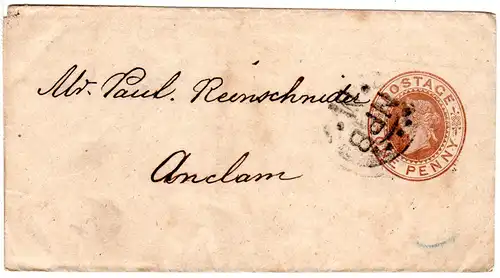 Mr. Paul. Reinschneider
Anclam
POSTAGE
ONE PENNY